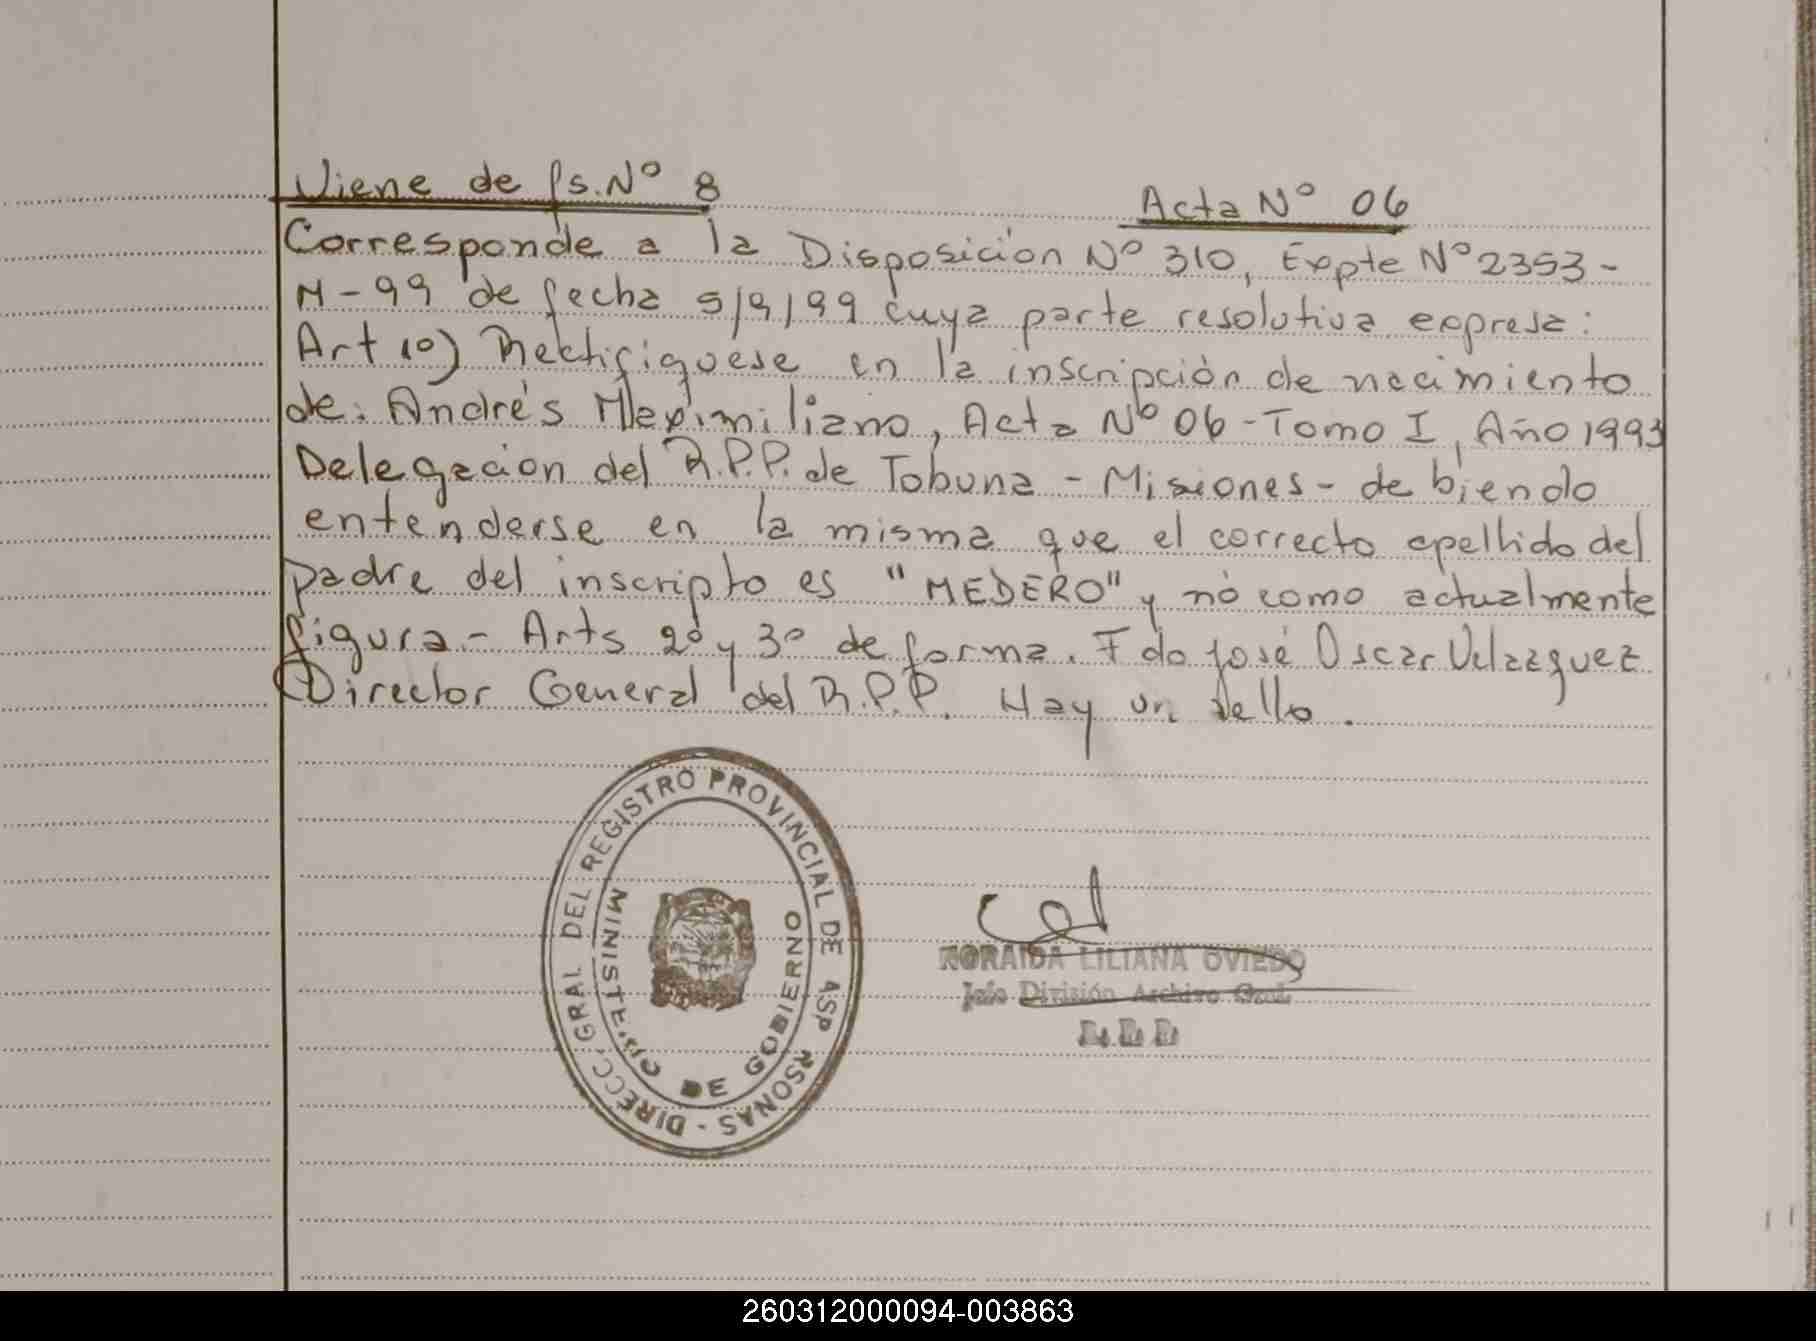 Viene de fs. Nº 8
Acta Nº 06
Corresponde a la Disposición Nº 310, Expte Nº 2353-
M-99 de fecha 5/9/99 cuya parte resolutiva expresa:
Art 1º) Rectifiquese en la inscripción de nacimiento
de: Andrés Maximiliano, Acta Nº 06 - Tomo I, Año 1993
Delegacion del R.P.P. de Tobuna - Misiones - debiendo
entenderse en la misma que el correcto apellido del
padre del inscripto es "MEDERO" y no como actualmente
figura.- Arts 2º y 3º de forma. Fdo José Oscar Velazquez
Director General del R.P.P. Hay un sello.
DIRECC. GRAL DEL REGISTRO PROVINCIAL DE
RSONAS -
DE GOBIERNO
NORAIDA LILIANA OVIEDO
Jefe División Archivo Gral.
260312000094-003863